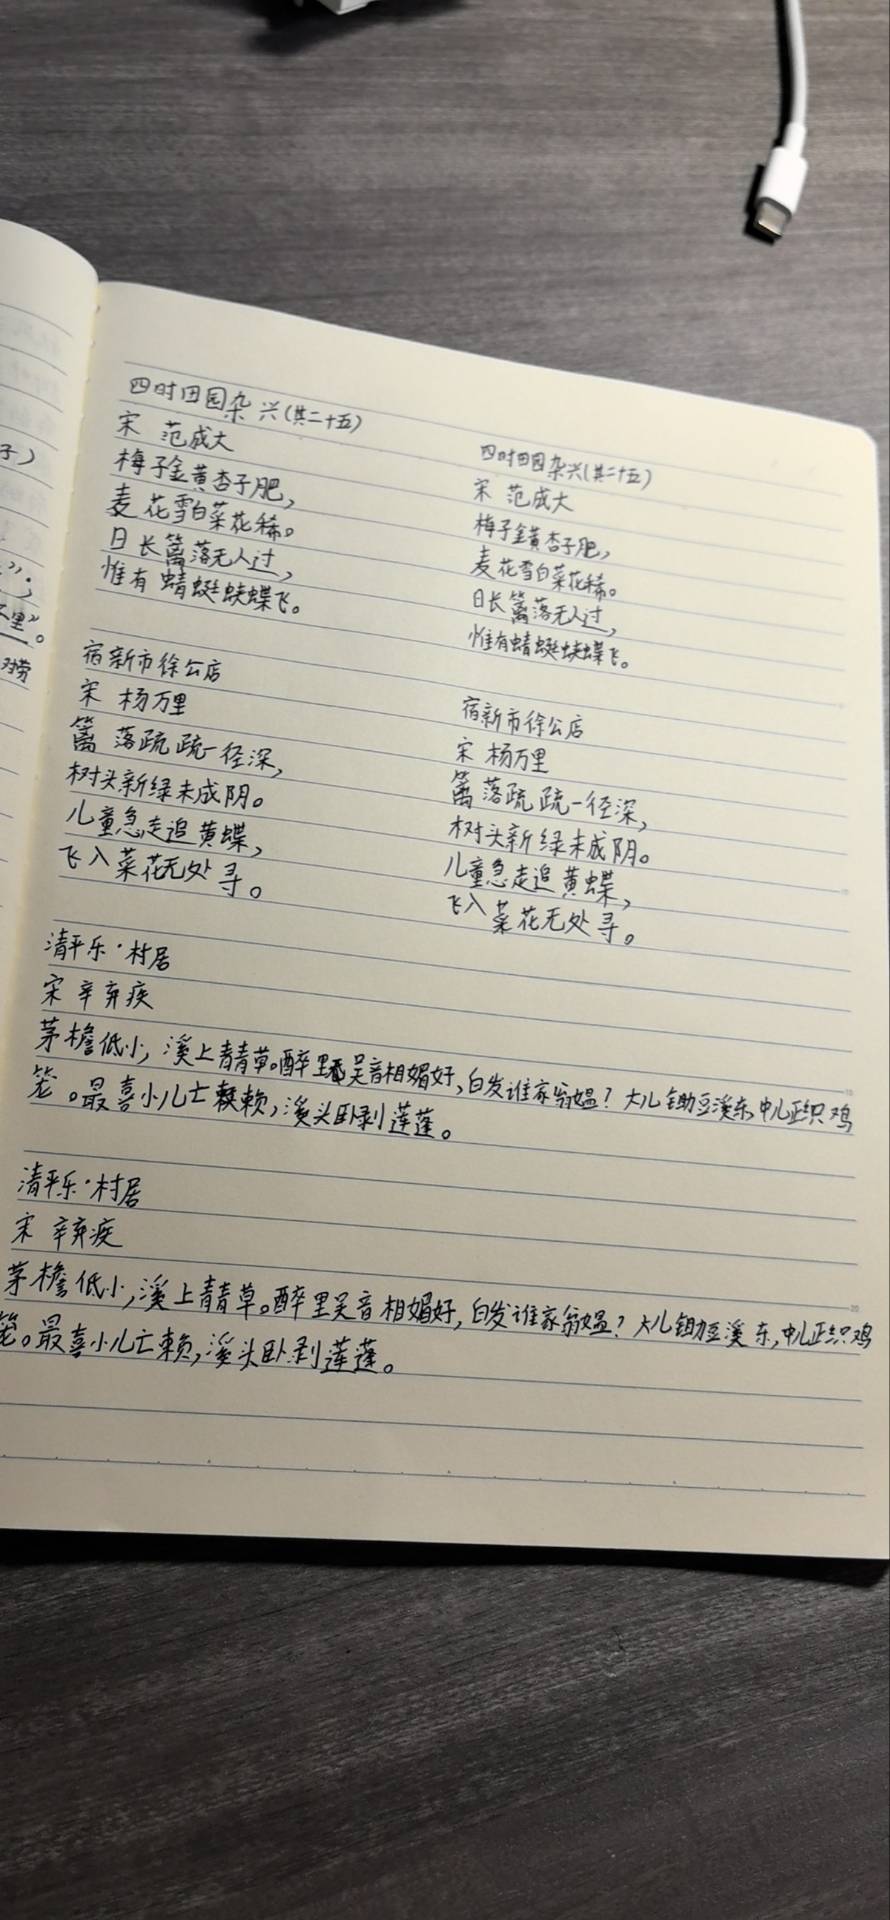 四时田园杂兴(其二十五)
宋 范成大
梅子金黄杏子肥，
麦花雪白菜花稀。
日长篱落无人过，
惟有蜻蜓蛱蝶飞。
宿新市徐公店
宋 杨万里
篱落疏疏一径深，
树头新绿未成阴。
儿童急走追黄蝶，
飞入菜花无处寻。
四时田园杂兴(其二十五)
宋 范成大
梅子金黄杏子肥，
麦花雪白菜花稀。
日长篱落无人过，
惟有蜻蜓蛱蝶飞。
宿新市徐公店
宋 杨万里
篱落疏疏一径深，
树头新绿未成阴。
儿童急走追黄蝶，
飞入菜花无处寻。
清平乐·村居
宋 辛弃疾
茅檐低小，溪上青青草。醉里吴音相媚好，白发谁家翁媪？大儿锄豆溪东，中儿正织鸡
笼。最喜小儿亡赖，溪头卧剥莲蓬。
清平乐·村居
宋 辛弃疾
茅檐低小，溪上青青草。醉里吴音相媚好，白发谁家翁媪？大儿锄豆溪东，中儿正织鸡
笼。最喜小儿亡赖，溪头卧剥莲蓬。
子）
里”。